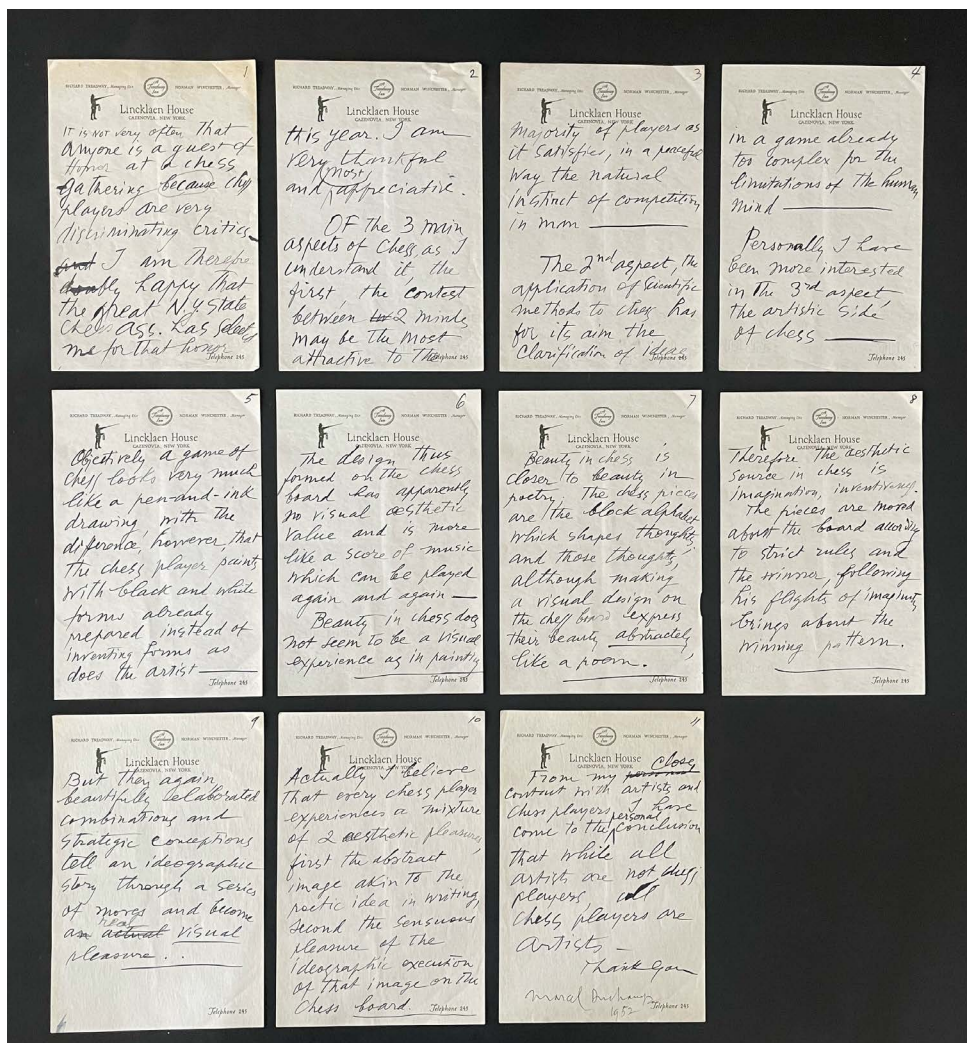 1
RICHARD TREADWAY, Managing Dir. A Treadway Inn NORMAN WINCHESTER, Manager
Lincklaen House
CAZENOVIA, NEW YORK
It is not very often that
anyone is a guest of
honor at a chess
gathering because chess
players are very
discriminating critics
and I am therefore
doubly happy that
the great N.Y. State
Chess Ass. has select
me for that honor
Telephone 245
2
RICHARD TREADWAY, Managing Dir. A Treadway Inn NORMAN WINCHESTER, Manager
Lincklaen House
CAZENOVIA, NEW YORK
this year. I am
very thankful
and most appreciative.
OF the 3 main
aspects of chess, as I
understand it, the
first, the contest
between 2 minds
may be the most
attractive to the
Telephone 245
3
RICHARD TREADWAY, Managing Dir. A Treadway Inn NORMAN WINCHESTER, Manager
Lincklaen House
CAZENOVIA, NEW YORK
Majority of players as
it satisfies, in a peaceful
way the natural
instinct of competition
in man
The 2nd aspect, the
application of scientific
methods to chess has
for its aim the
clarification of ideas
Telephone 245
4
RICHARD TREADWAY, Managing Dir. A Treadway Inn NORMAN WINCHESTER, Manager
Lincklaen House
CAZENOVIA, NEW YORK
in a game already
too complex for the
limitations of the human
mind
Personally I have
been more interested
in the 3rd aspect,
the artistic side
of chess
Telephone 245
5
RICHARD TREADWAY, Managing Dir. A Treadway Inn NORMAN WINCHESTER, Manager
Lincklaen House
CAZENOVIA, NEW YORK
Objectively a game of
chess looks very much
like a pen-and-ink
drawing with the
difference, however, that
the chess player paints
with black and white
forms already
prepared instead of
inventing forms as
does the artist
Telephone 245
6
RICHARD TREADWAY, Managing Dir. A Treadway Inn NORMAN WINCHESTER, Manager
Lincklaen House
CAZENOVIA, NEW YORK
The design thus
formed on the chess
board has apparently
no visual aesthetic
value and is more
like a score of music
which can be played
again and again —
Beauty in chess does
not seem to be a visual
experience as in painting
Telephone 245
7
RICHARD TREADWAY, Managing Dir. A Treadway Inn NORMAN WINCHESTER, Manager
Lincklaen House
CAZENOVIA, NEW YORK
Beauty in chess is
closer to beauty in
poetry. The chess pieces
are the block alphabet
which shapes thoughts
and those thoughts,
although making
a visual design on
the chess board express
their beauty abstractely,
like a poem.
Telephone 245
8
RICHARD TREADWAY, Managing Dir. A Treadway Inn NORMAN WINCHESTER, Manager
Lincklaen House
CAZENOVIA, NEW YORK
Therefore the aesthetic
source in chess is
imagination, inventiving.
The pieces are moved
about the board according
to strict rules and
the winner, following
his flights of imagination
brings about the
winning pattern.
Telephone 245
9
RICHARD TREADWAY, Managing Dir. A Treadway Inn NORMAN WINCHESTER, Manager
Lincklaen House
CAZENOVIA, NEW YORK
But then again
beautifully elaborated
combinations and
strategic conceptions
tell an ideographic
story through a series
of moves and become
a real actual visual
pleasure..
Telephone 245
10
RICHARD TREADWAY, Managing Dir. A Treadway Inn NORMAN WINCHESTER, Manager
Lincklaen House
CAZENOVIA, NEW YORK
Actually I believe
that every chess player
experiences a mixture
of 2 aesthetic pleasures,
first the abstract
image akin to the
poetic idea in writing,
second the sensuous
pleasure of the
ideographic execution
of that image on the
chess board.
Telephone 245
11
RICHARD TREADWAY, Managing Dir. A Treadway Inn NORMAN WINCHESTER, Manager
Lincklaen House
CAZENOVIA, NEW YORK
From my personal close
contact with artists and
chess players, I have
come to the personal conclusion
that while all
artists are not chess
players all
chess players are
artists —
Thank you
Marcel Duchamp
1952
Telephone 245